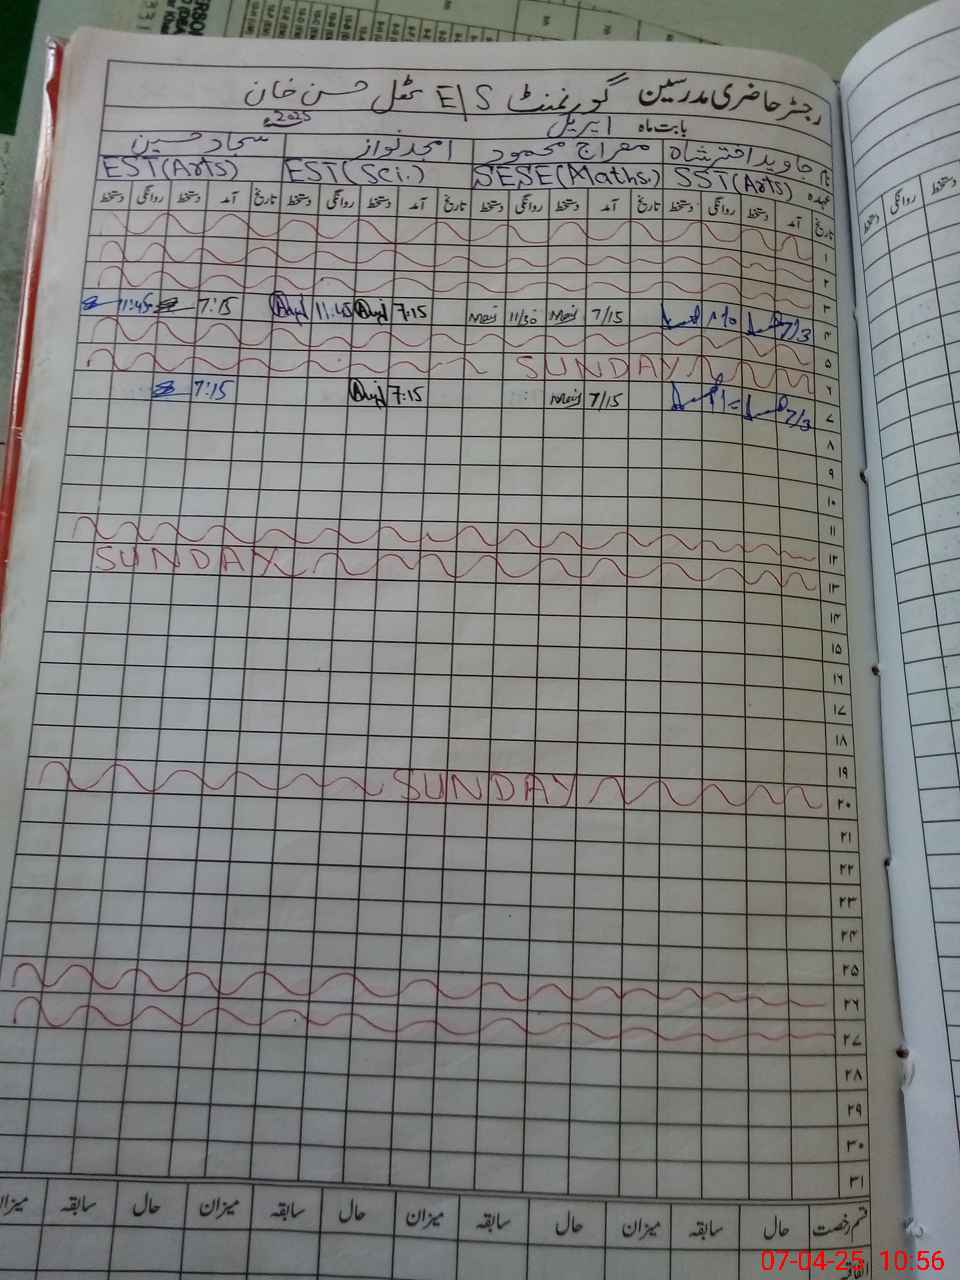 رجسٹر حاضری مدرسین گورنمنٹ E/S ٹھل حسن خان
بابت ماہ اپریل 2025
نام جاوید اختر شاہ معراج محمود امجد نواز سجاد حسین
عہدہ SST(Arts) SESE(Maths.) EST(Sci.) EST(Arts)
تاریخ آمد دستخط روانگی دستخط تاریخ آمد دستخط روانگی دستخط تاریخ آمد دستخط روانگی دستخط تاریخ آمد دستخط روانگی دستخط
۱
۲
۳
۴ 7/15 11/30 7:15 11:45 7:15 11:45
۵
۶ SUNDAY
۷ 7/15 7:15 7:15
۸
۹
۱۰
۱۱
۱۲
۱۳ SUNDAY
۱۴
۱۵
۱۶
۱۷
۱۸
۱۹
۲۰ SUNDAY
۲۱
۲۲
۲۳
۲۴
۲۵
۲۶
۲۷
۲۸
۲۹
۳۰
۳۱
قسم رخصت حال سابقہ میزان حال سابقہ میزان حال سابقہ میزان حال سابقہ میزان
دستخط روانگی دستخط
07-04-25 10:56